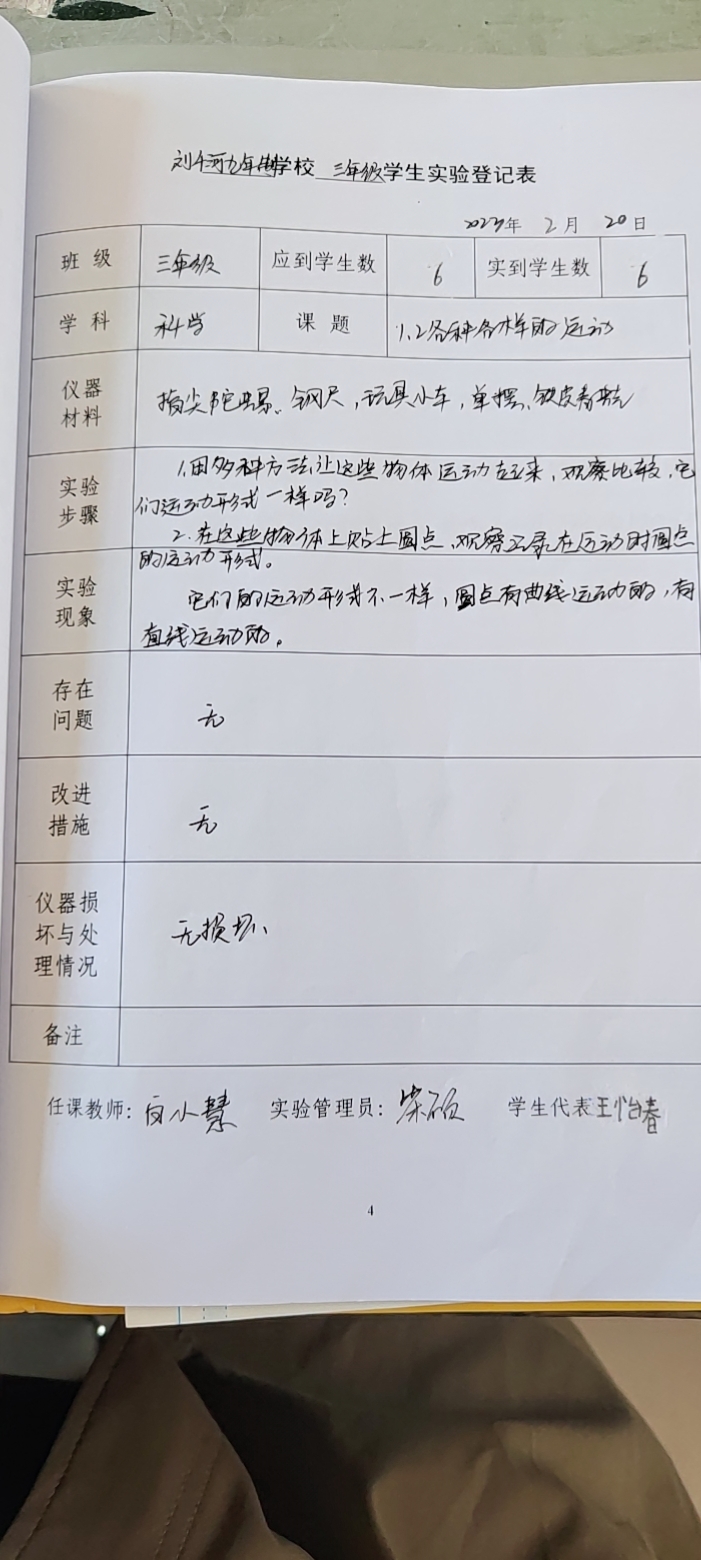 刘千河九年制学校 三年级学生实验登记表
年 2月 20日
班 级 三年级 应到学生数 6 实到学生数 6
学 科 科学 课 题 1.2各种各样的运动
仪器
材料
指尖陀螺、钢尺,玩具小车,单摆、铁皮青蛙
实验
步骤
1.用多种方法让这些物体运动起来,观察比较,它
们运动形式一样吗?
2.在这些物体上贴上圆点,观察记录在运动时圆点
的运动形式。
实验
现象
它们的运动形式不一样,圆点有曲线运动的,有
直线运动的。
存在
问题
无
改进
措施
无
仪器损
坏与处
理情况
无损坏、
备注
任课教师:白小慧 实验管理员:柴硕 学生代表王怡春
4